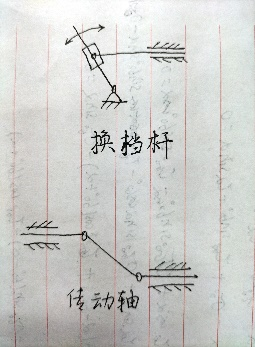 换档杆
传动轴